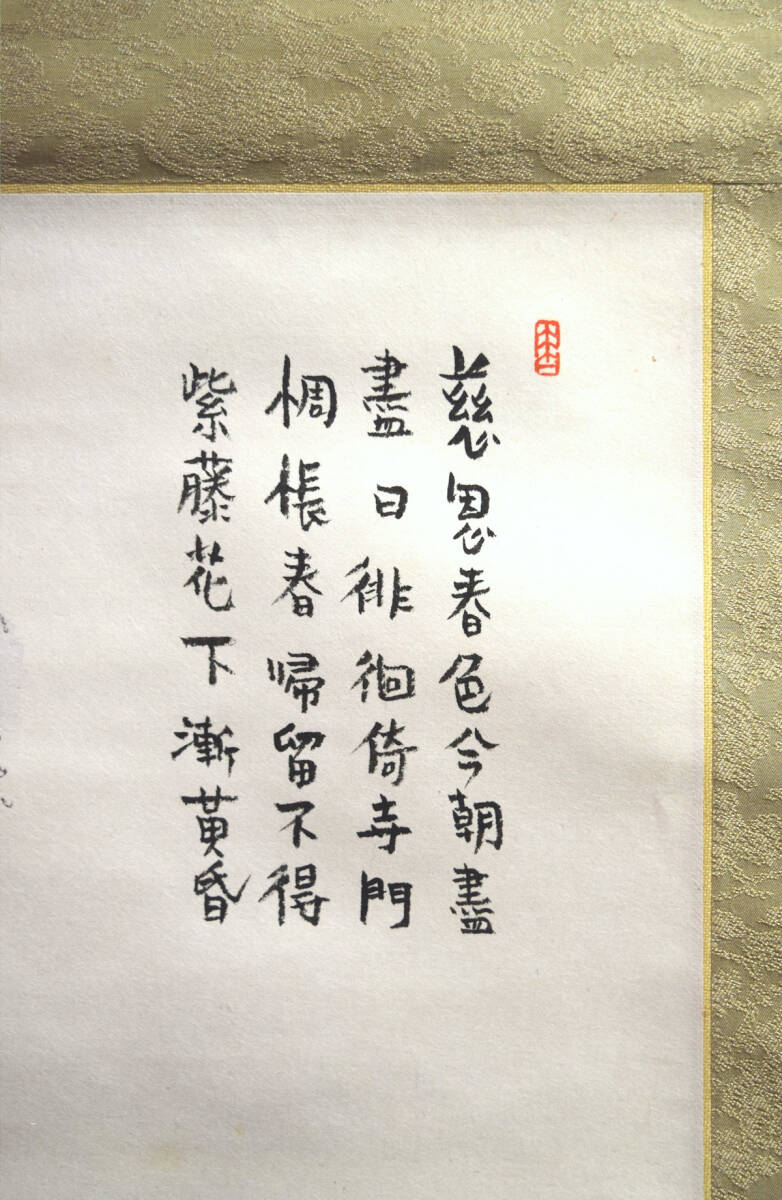 慈恩春色今朝盡
盡日徘徊倚寺門
惆悵春歸留不得
紫藤花下漸黃昏